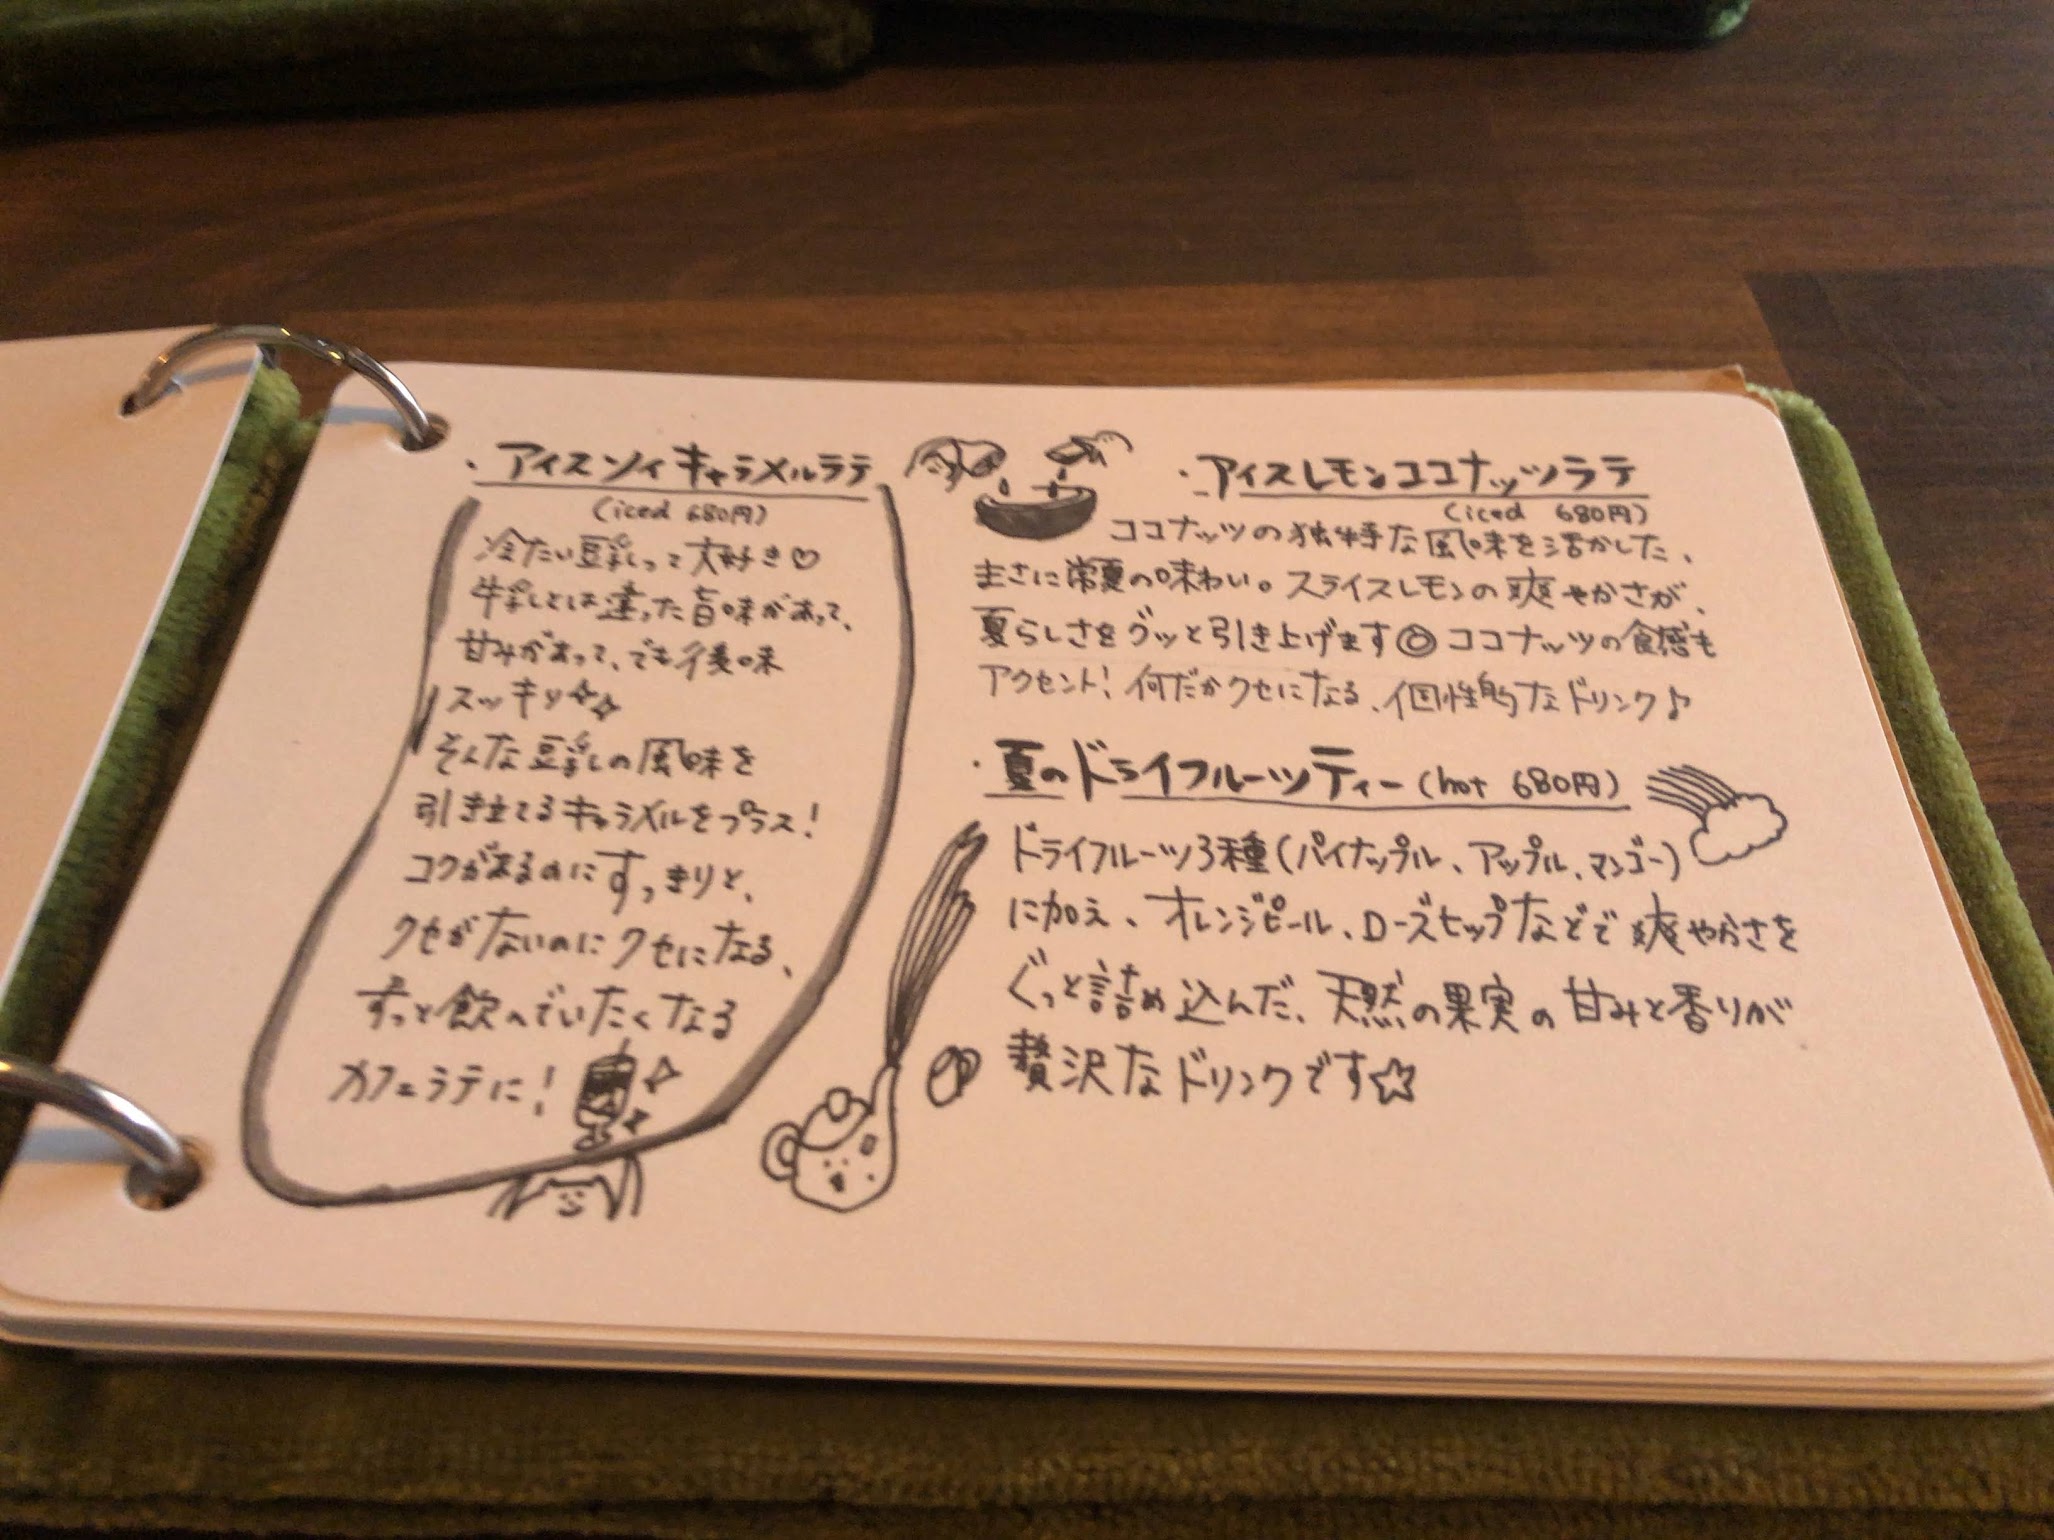 ・アイスソイキャラメルラテ
(iced 680円)
冷たい豆乳って大好き♡
牛乳とは違った旨味があって、
甘みがあって、でも後味
スッキリ✧✧
そんな豆乳の風味を
引き立てるキャラメルをプラス!
コクがあるのにすっきりと、
クセがないのにクセになる、
ずっと飲んでいたくなる
カフェラテに!
・アイスレモンココナッツラテ
(iced 680円)
ココナッツの独特な風味を活かした、
まさに常夏の味わい。スライスレモンの爽やかさが、
夏らしさをグッと引き上げます◎ ココナッツの食感も
アクセント! 何だかクセになる、個性的なドリンク♪
・夏のドライフルーツティー(hot 680円)
ドライフルーツ3種(パイナップル、アップル、マンゴー)
に加え、オレンジピール、ローズヒップなどで爽やかさを
ぐっと詰め込んだ、天然の果実の甘みと香りが
贅沢なドリンクです☆